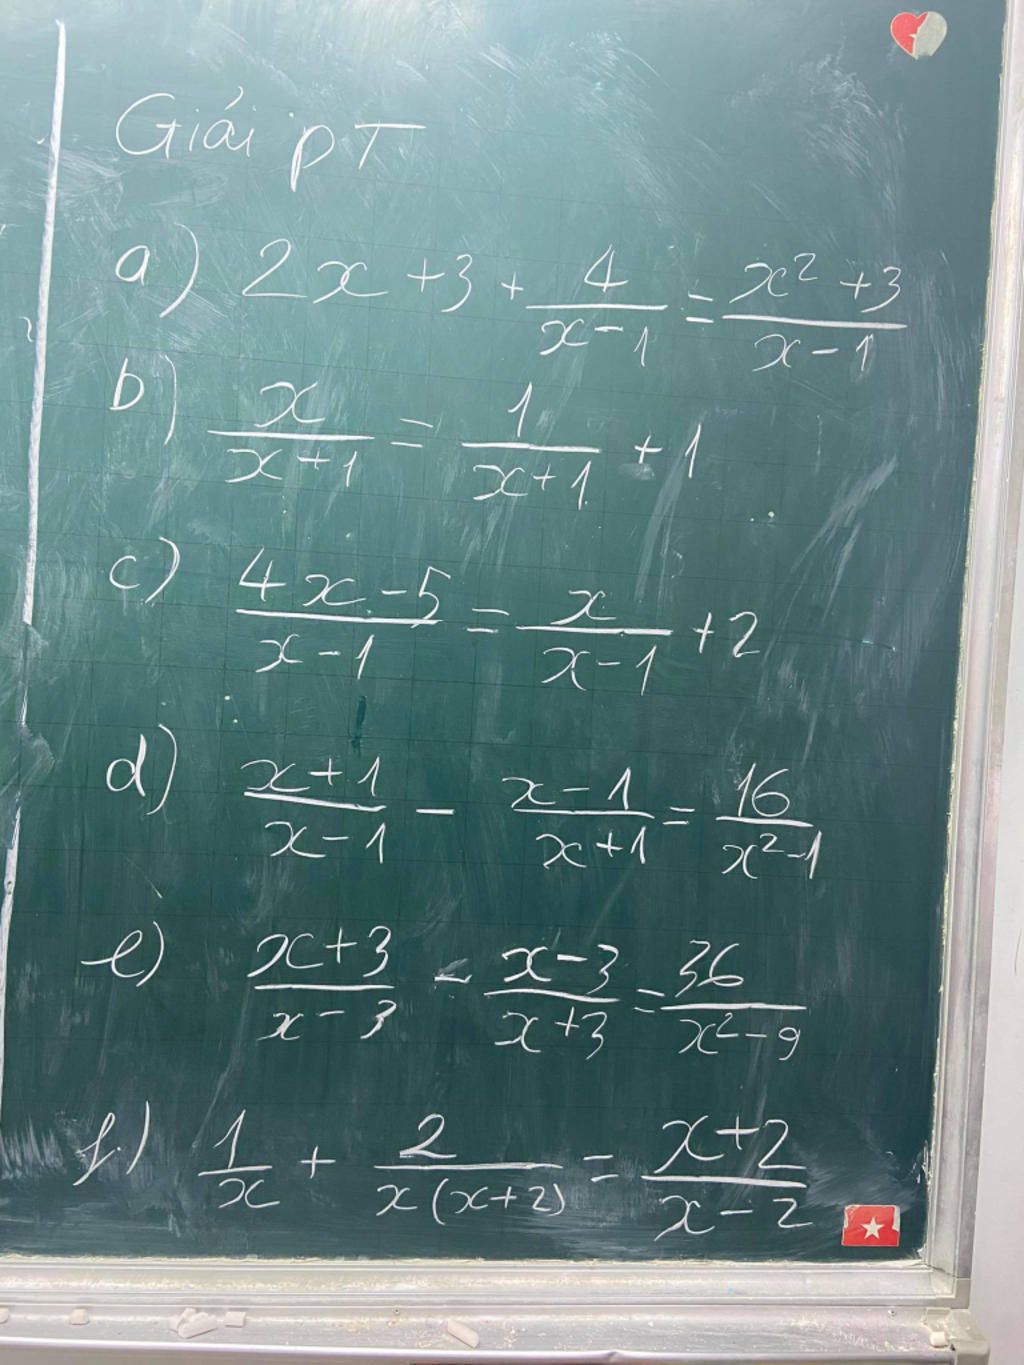 Giải pT
a) 2x + 3 + 4/(x-1) = (x² + 3)/(x-1)
b) x/(x+1) = 1/(x+1) + 1
c) (4x-5)/(x-1) = x/(x-1) + 2
d) (x+1)/(x-1) - (x-1)/(x+1) = 16/(x²-1)
e) (x+3)/(x-3) - (x-3)/(x+3) = 36/(x²-9)
f) 1/x + 2/(x(x+2)) = (x+2)/(x-2)